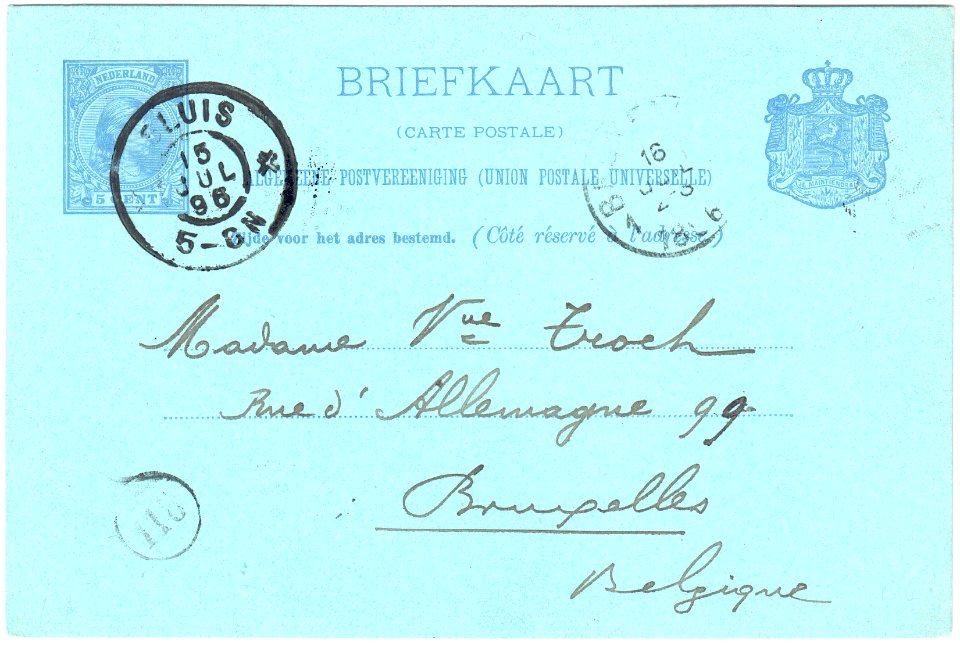 NEDERLAND
5 CENT
BRIEFKAART
(CARTE POSTALE)
ALGEMEENE POSTVEREENIGING (UNION POSTALE UNIVERSELLE)
Zijde voor het adres bestemd. (Côté réservé à l'adresse.)
SLUIS
15
JUL
96
5-8N
16
Madame Vue Troch
Rue d'Allemagne 99
Bruxelles
Belgique